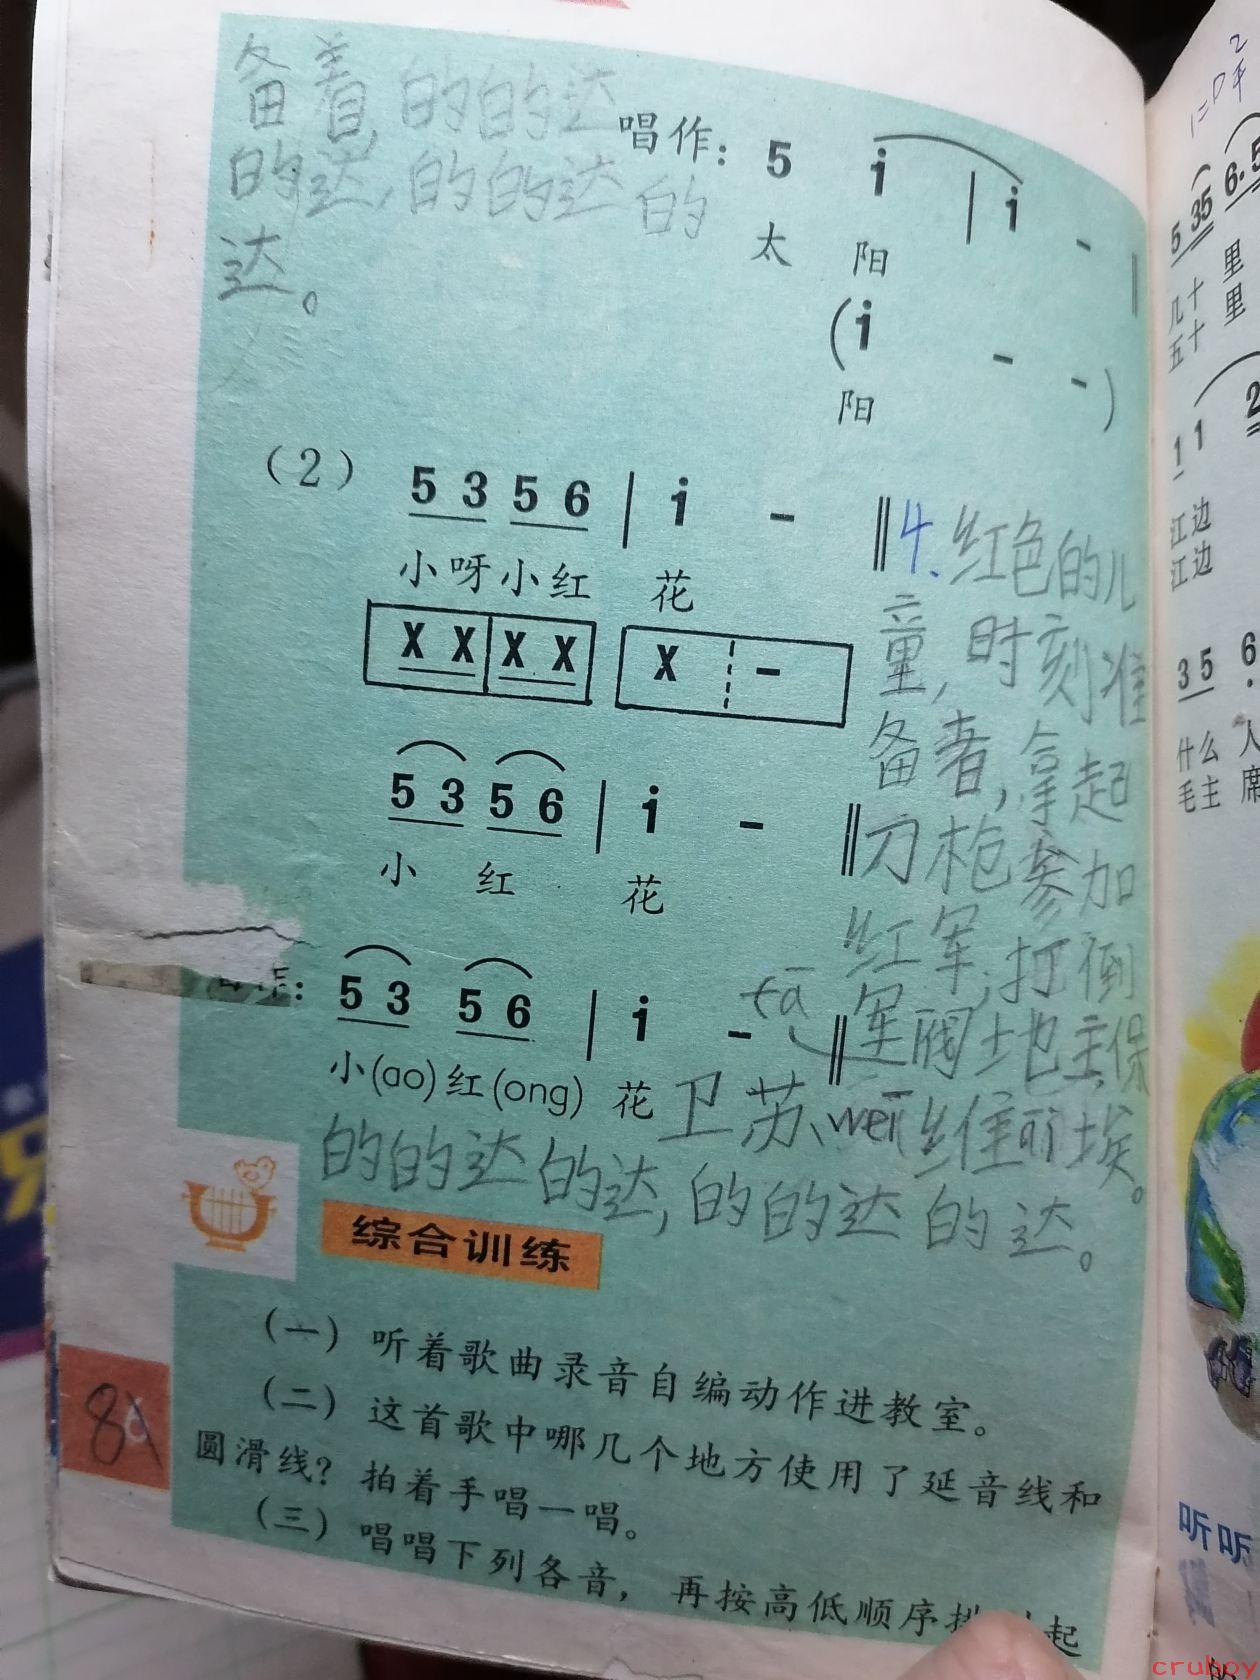 备着,的的达
的达,的的达的
达。
唱作: 5 i | i - ‖
太 阳
(i - -)
阳
(2) 5 3 5 6 | i - ‖
小呀小红 花
X X X X X -
5 3 5 6 | i - ‖
小 红 花
作: 5 3 5 6 | i - ‖
小(ao)红(ong) 花
4.红色的儿
童,时刻准
备着,拿起
刀枪参加
红军,打倒
fā
军阀土地主,保
卫苏、wēi维耶埃。
的的达的达,的的达的达。
综合训练
(一) 听着歌曲录音自编动作进教室。
(二) 这首歌中哪几个地方使用了延音线和
圆滑线?拍着手唱一唱。
(三) 唱唱下列各音,再按高低顺序排 起
8
1=D 2/4
5 35 6.5
几十 里
五十 里
1 1 2
江边
江边
3 5 6
什么 人
毛主 席
听听
cruhoy